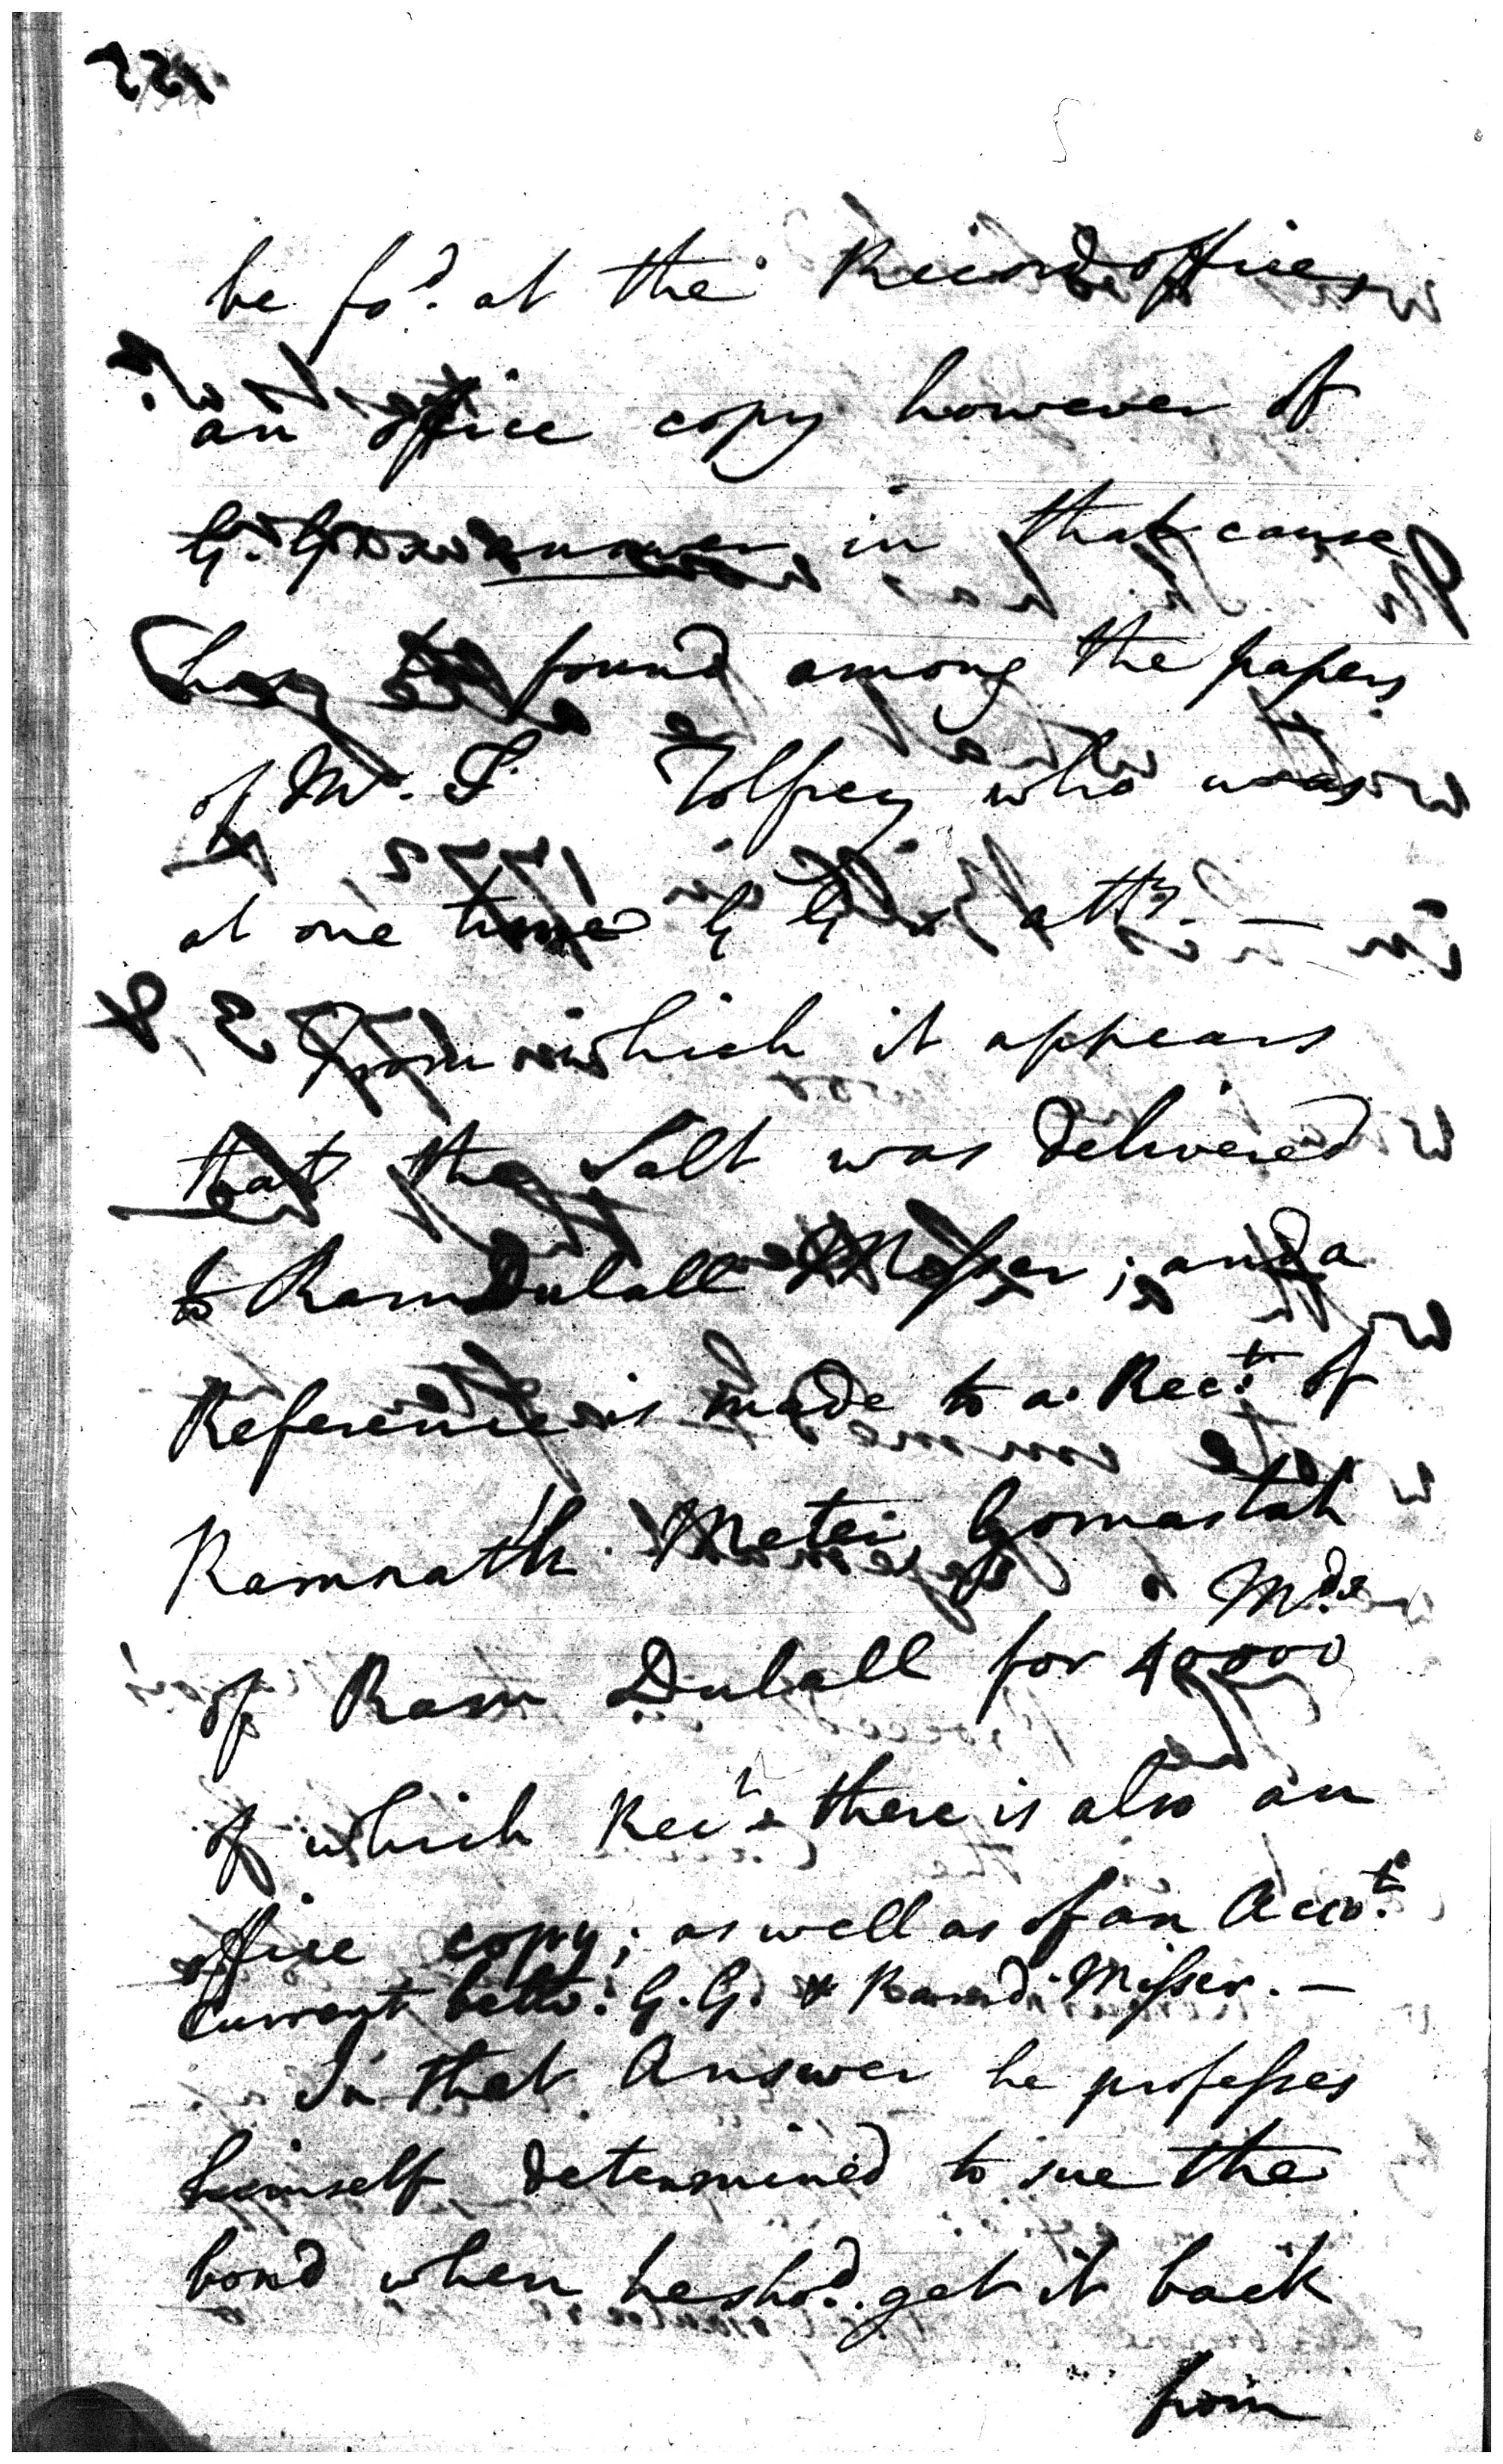 be fo.d at the Record office,
an office copy however of
G. G answer in that cause
has been found among the papers
of Mr. S. Tolfrey who was
at one time G G's att.y —
From which it appears
that the Salt was delivered
to Ram Dulall Misser; and a
Reference is made to a Rec.t of
Ramnath Metei Gomastah
of Ram Dulall for 40000 M.ds
of which Rec.t there is also an
office copy; as well as of an Acco.t
Current betw. G. G. & Ram d. Misser. —
In that Answer he professes
himself determined to sue the
bond when he sho.d get it back
from